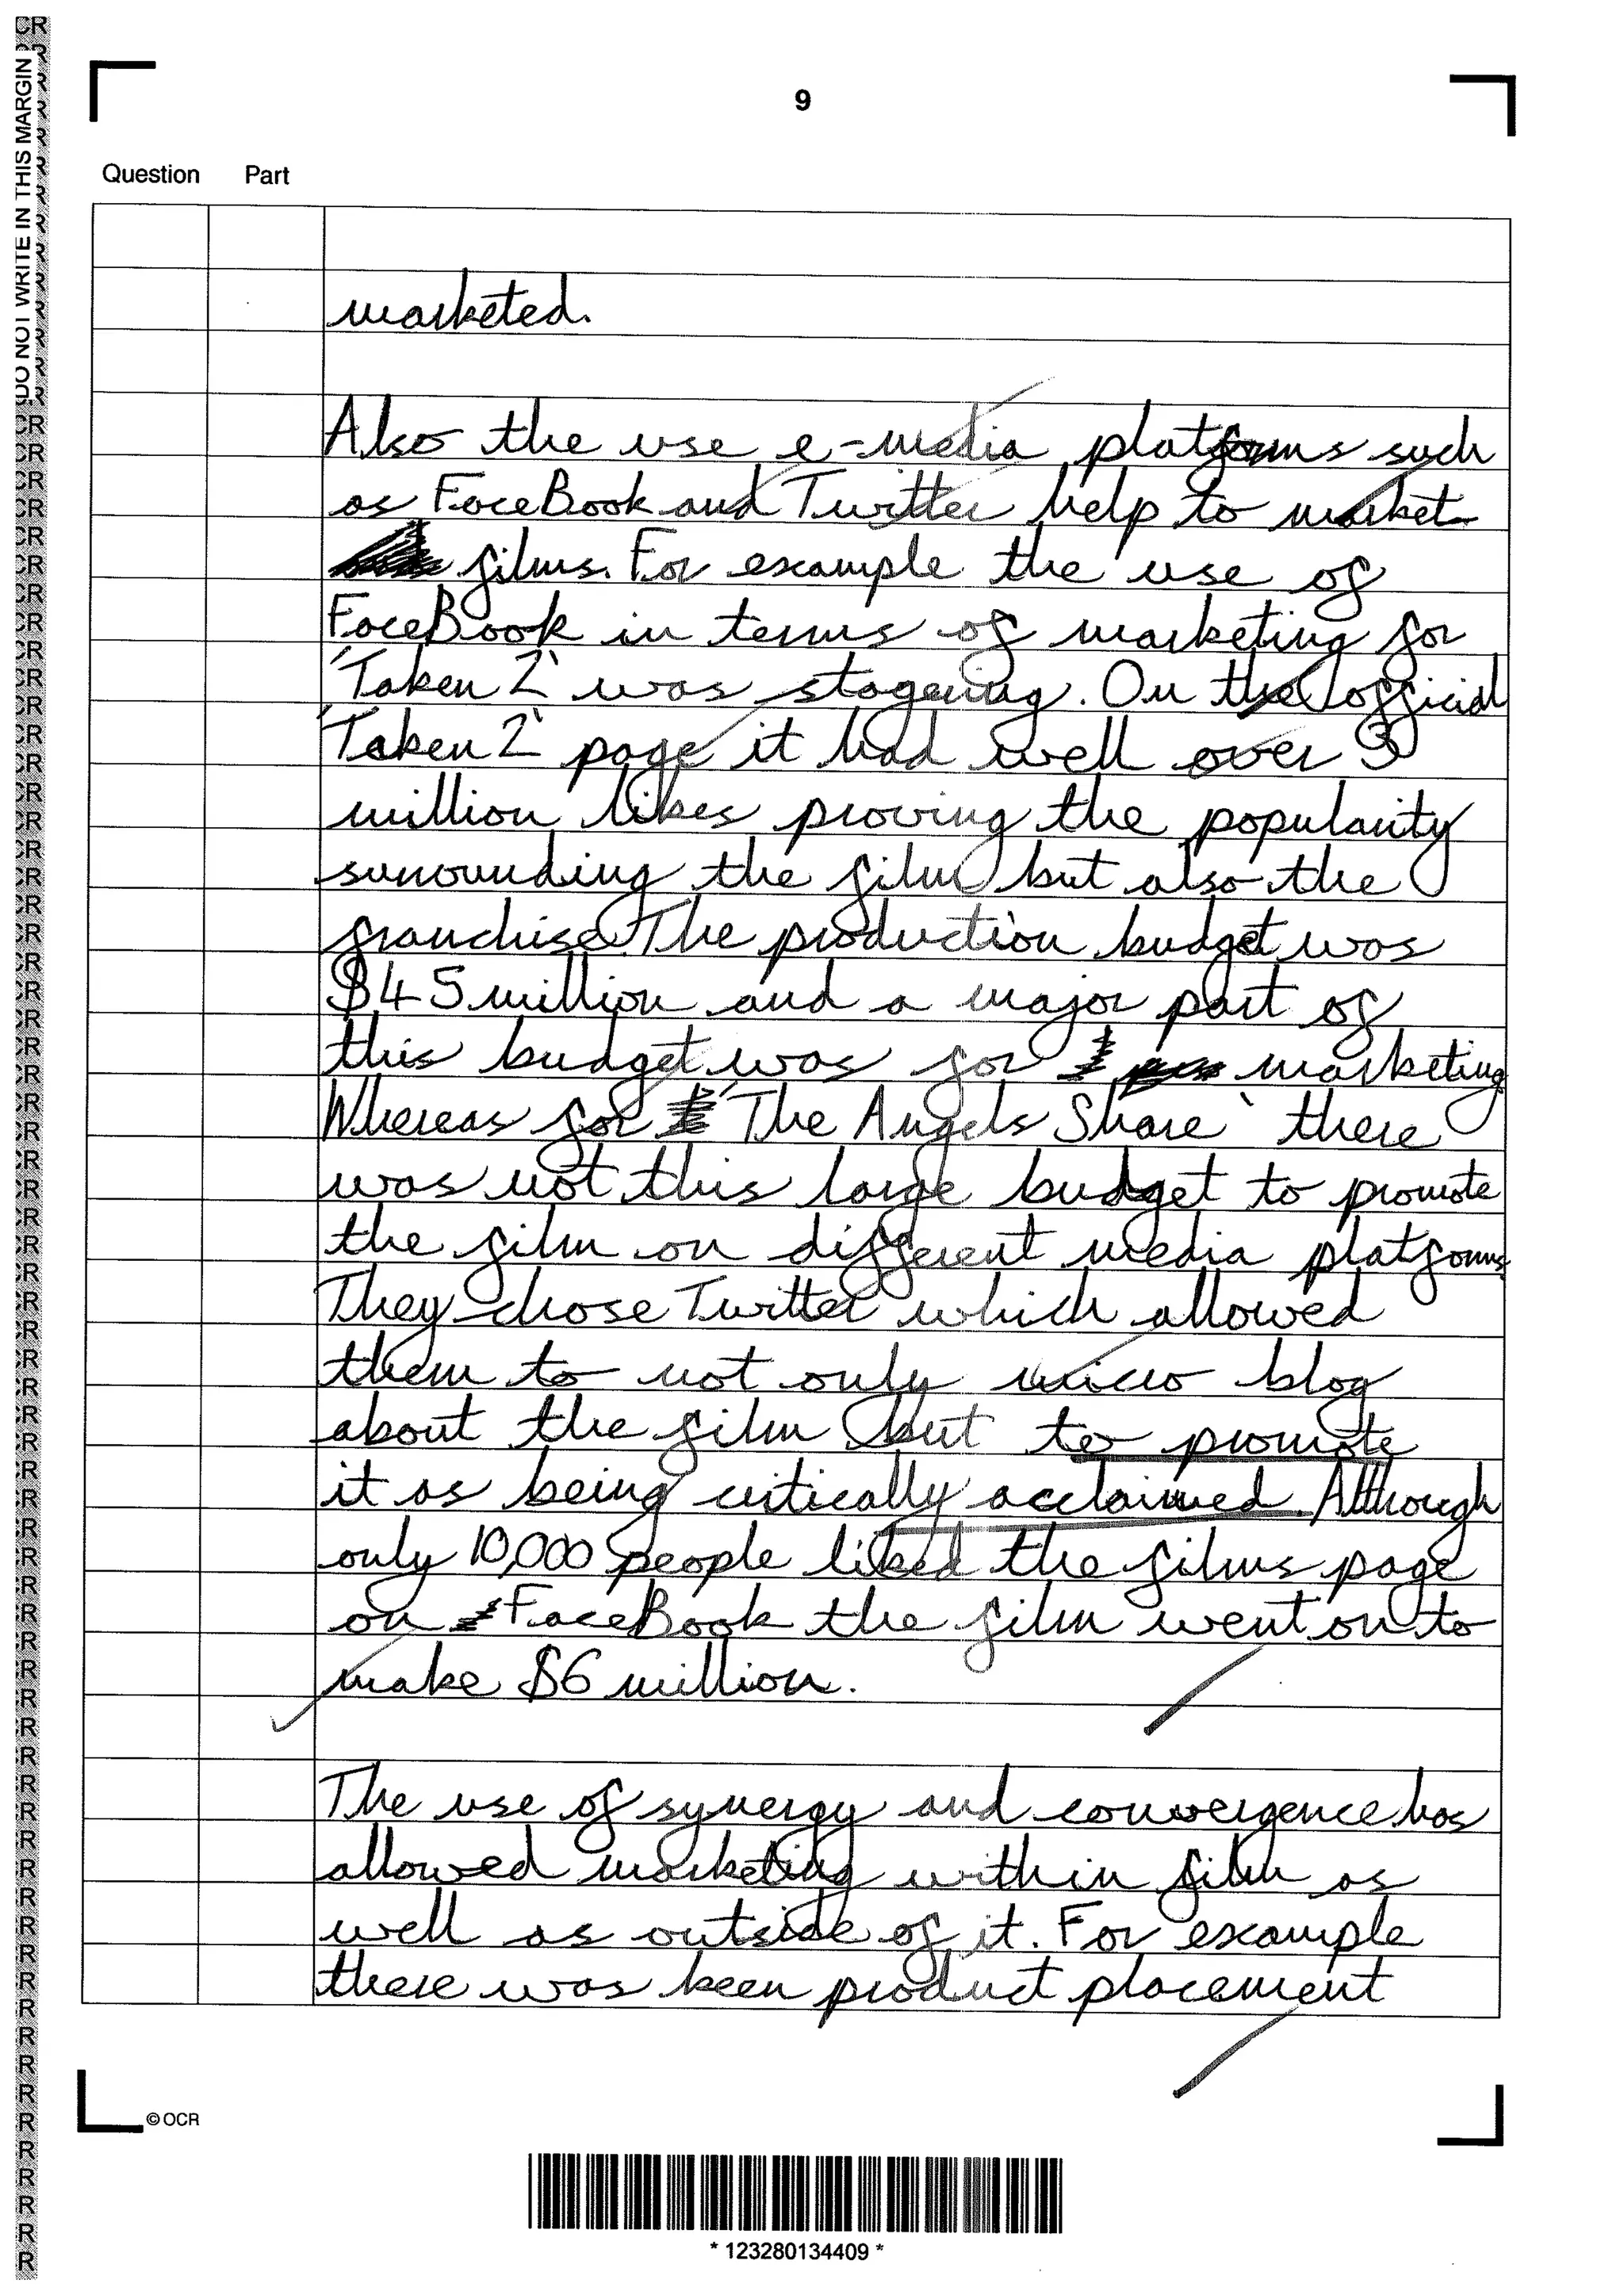 DO NOT WRITE IN THIS MARGIN
9
Question Part
marketed.
Also the use e-media platforms such
as FaceBook and Twitter help to market
films. For example the use of
FaceBook in terms of marketing for
'Taken 2' was stagering. On the official
'Taken 2' page it had well over 3
million likes proving the popularity
surrounding the film but also the
franchise. The production budget was
$45 million and a major part of
this budget was for marketing
Whereas for 'The Angels Share' there
was not this large budget to promote
the film on different media platforms.
They chose Twitter which allowed
them to not only micro blog
about the film but to promote
it as being critically acclaimed. Although
only 10,000 people liked the films page
on FaceBook the film went on to
make $6 million.
The use of synergy and convergence has
allowed marketing within film as
well as outside of it. For example
there was been product placement
© OCR
* 123280134409 *